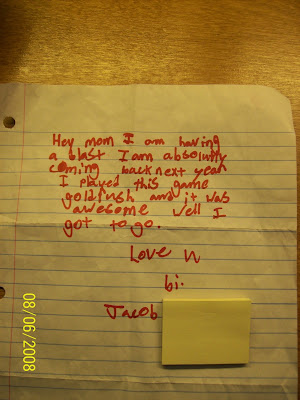 Hey mom I am having
a blast I am absolutly
coming back next year
I played this game
goldfush and it was
awesome well I
got to go.
Love u
bi.
Jacob
08/06/2008